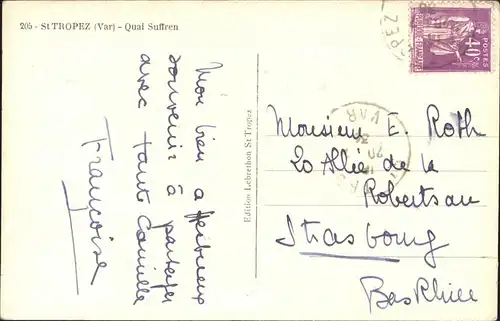 205 - St TROPEZ (Var) - Quai Suffren
Mon bien affectueux
souvenir à partager
avec tante Camille
Françoise
Edition Lebrethon St Tropez
POSTES
40c
VAR
Monsieur E. Roth
20 Allée de la
Robertsau
Strasbourg
Bas Rhin